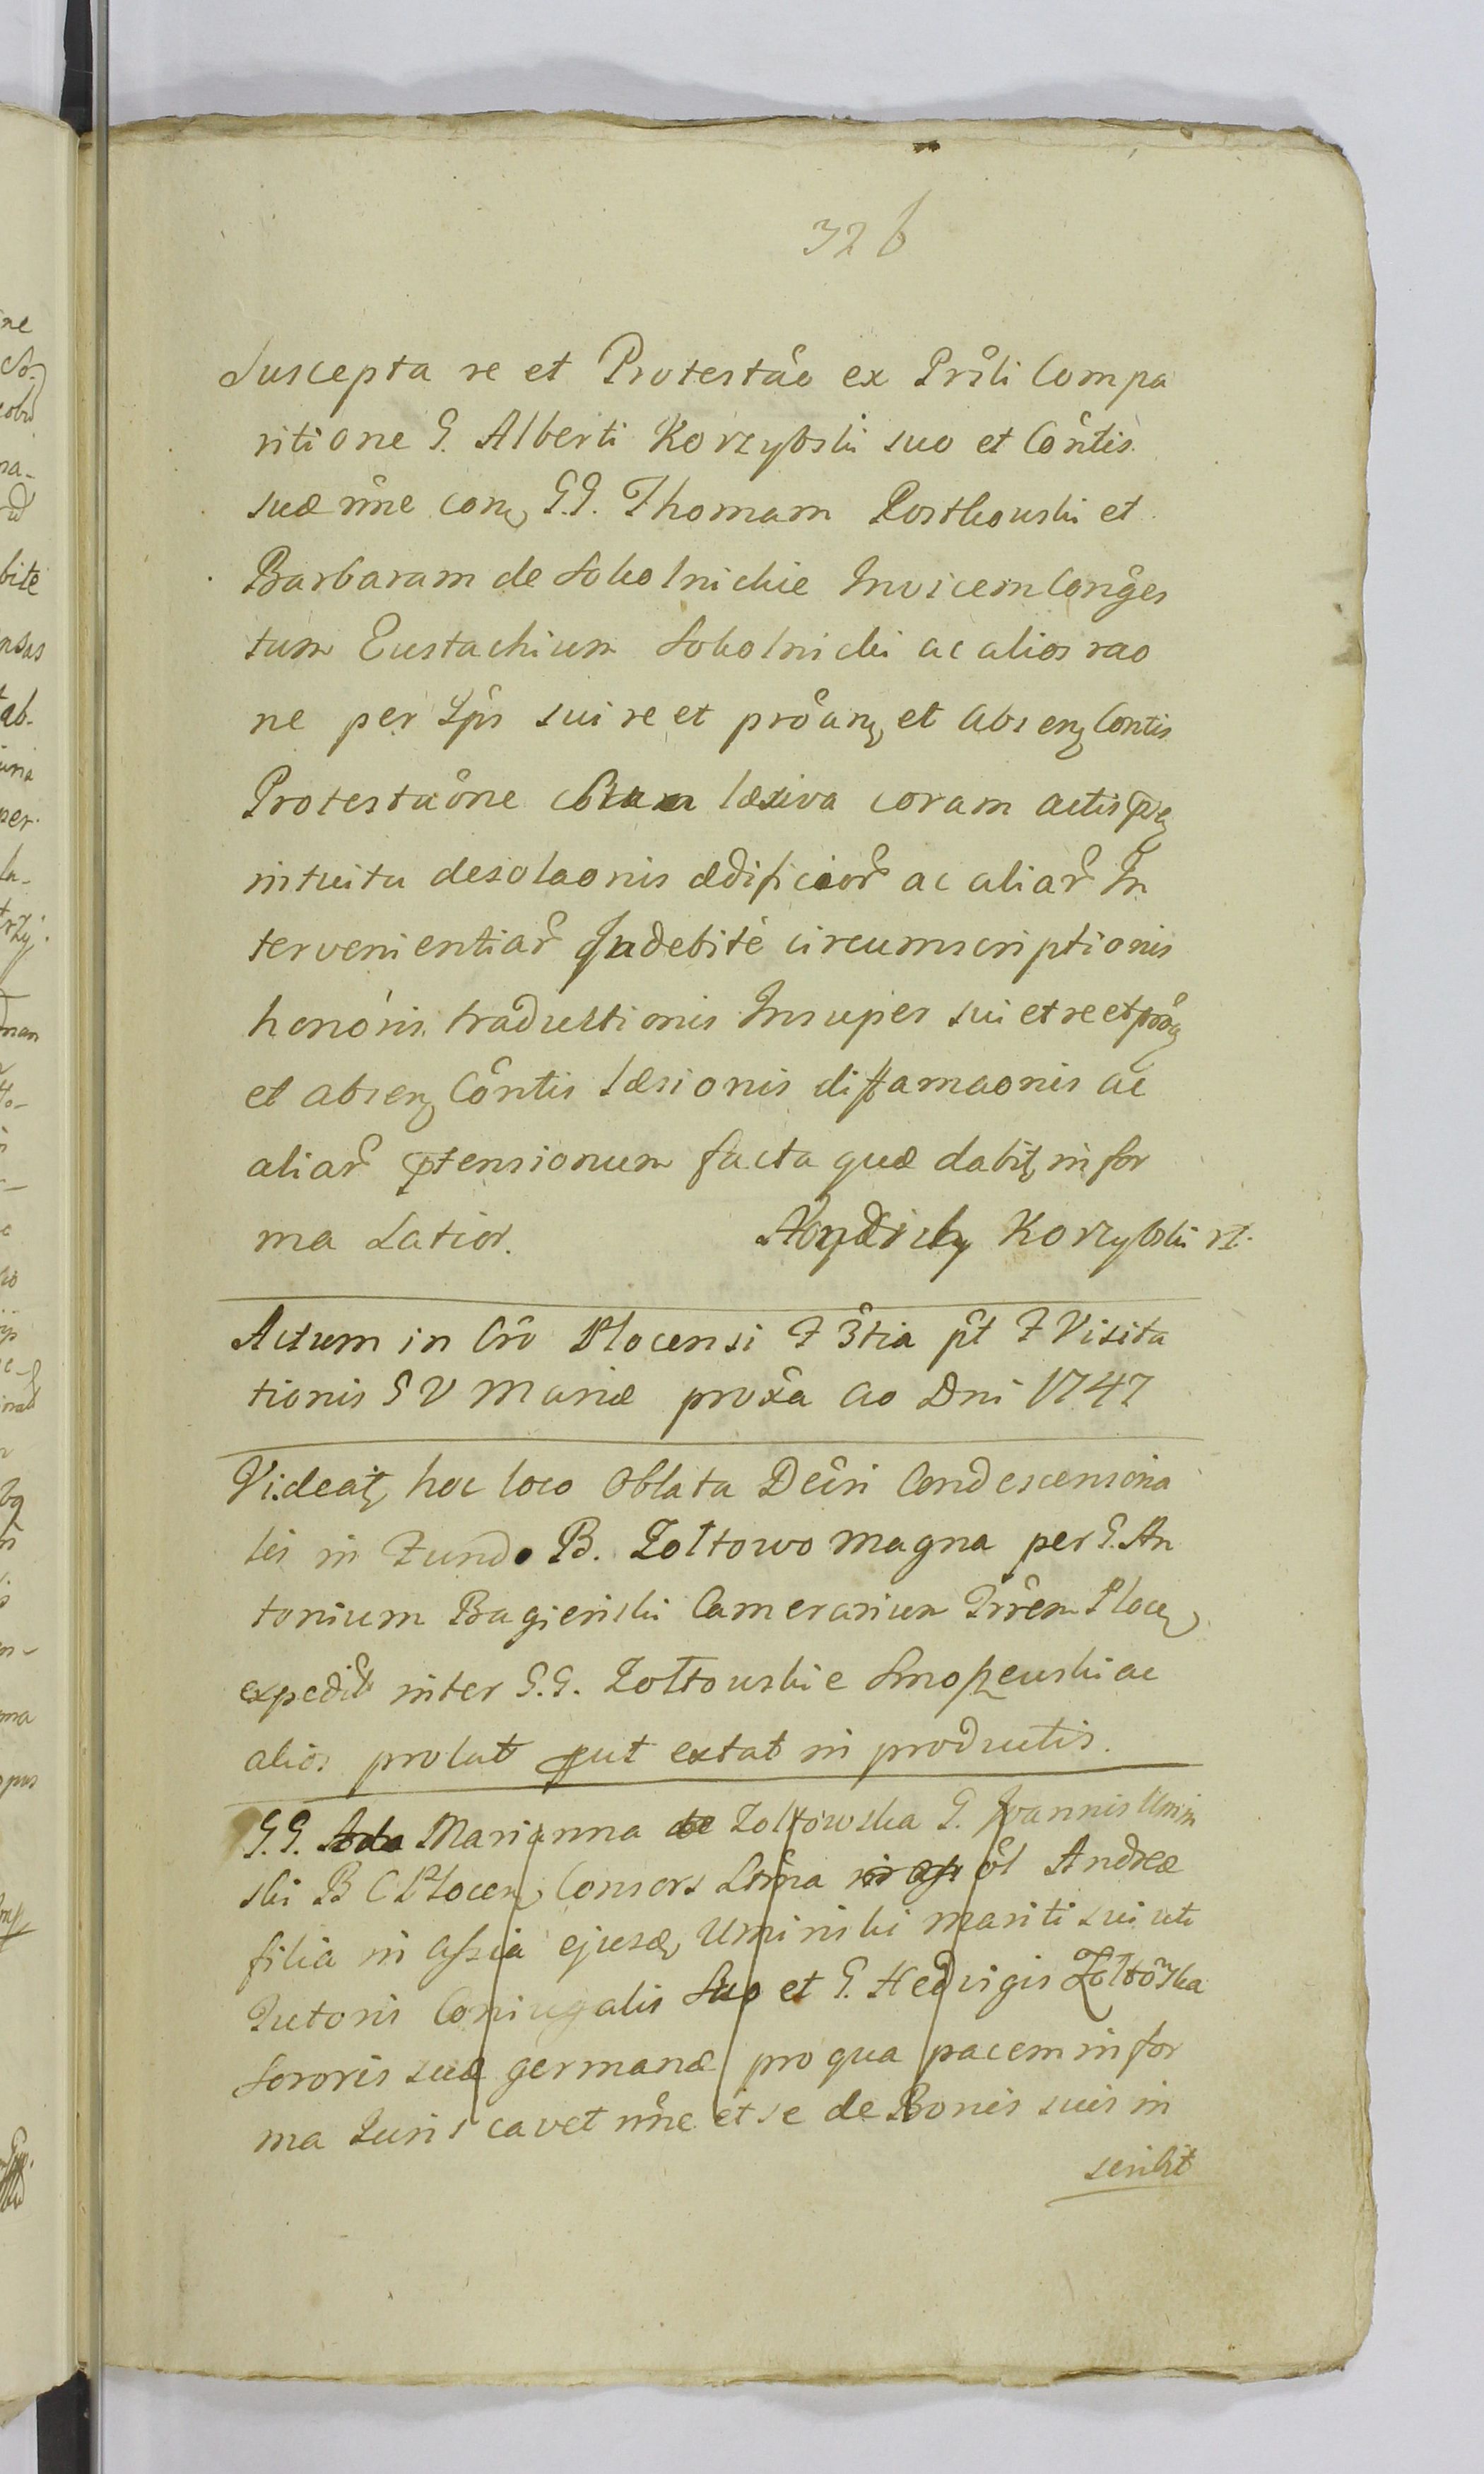 326
Suscepta re et Protestao ex Prsli Compa
ritione G. Alberti Korzybski suo et Contis
suæ nne con GG. Thomam Rostkowski et
Barbaram de Sokolnickie Invicem Conges
tum Eustachium Sokolnicki ac alios rao
ne per Ips sui re et proan et absen Contis
Protestaone læsiva coram actis
intuitu desolaonis ædificior ac aliar In
tervenientiar Indebitè circumscriptionis
honoris traductionis Insuper sui et re et proa
et absen Contis læsionis diffamaonis ac
aliar ptensionum facta quæ dabit in for
ma Latior. Korzybski
Actum in Cro Plocensi F 3tia pt F Visita
tionis S V Mariæ proxa Ao Dni 1747
Videat hoc loco Oblata Decri Condescensiona
lis in Fundo B. Zołtowo Magna per G. An
tonium Bagieński Camerarium Trrem Plocen
expedit inter G.G. Zołtowskie Smoszewski ac
alios prolat put extat in productis.
G.G. Marianna de Zołtowska G. Joannis Umin
ski B C Plocen Consors Ltma ol Andreæ
filia in assia ejusd Uminski mariti sui uti
Tutoris Coniugalis Suo et G. Hedvigis Zołtowska
Sororis suæ germanæ pro qua pacem in for
ma Juris cavet nne et se de Bonis suis in
scribit